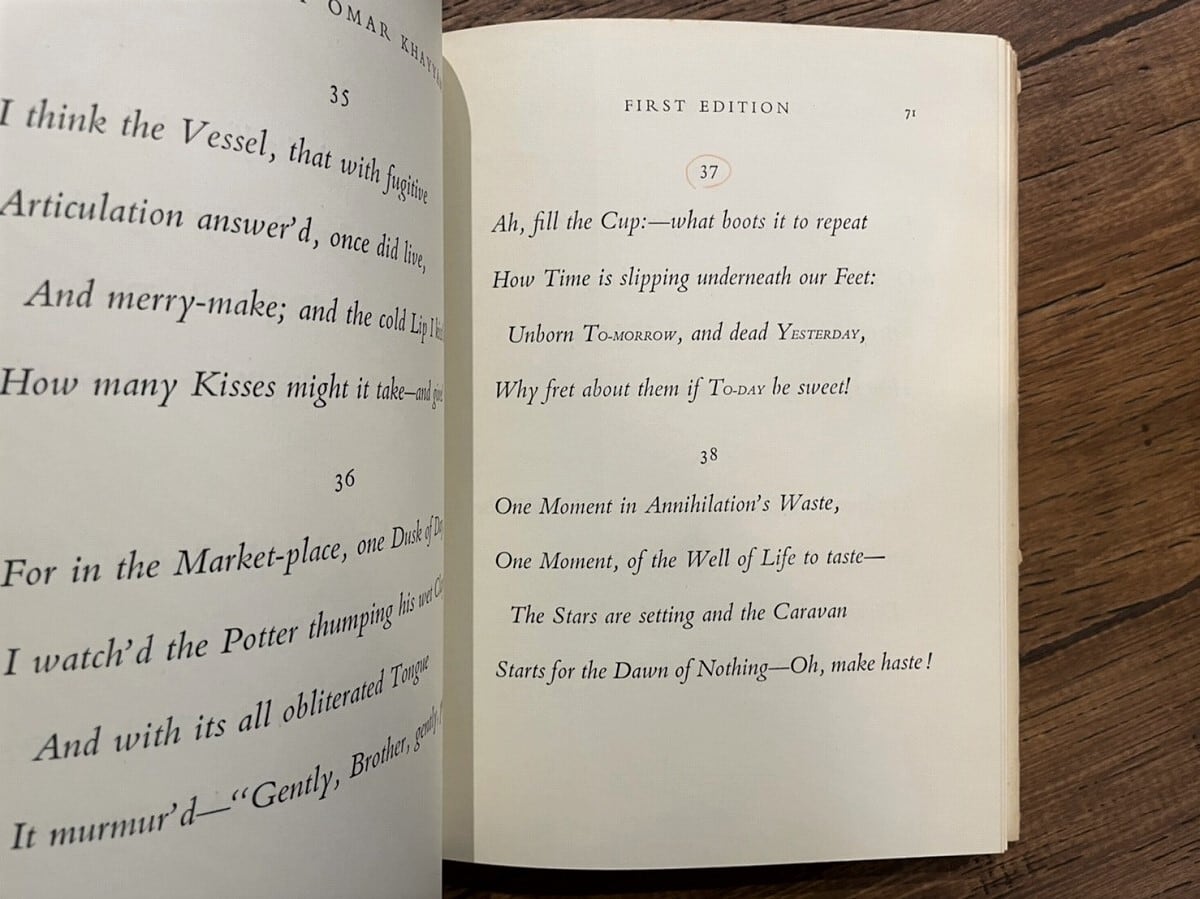 OMAR KHAYYÁM
35
I think the Vessel, that with fugitive
Articulation answer’d, once did live,
And merry-make; and the cold Lip I
How many Kisses might it take—and
36
For in the Market-place, one Dusk of
I watch’d the Potter thumping his wet
And with its all obliterated Tongue
It murmur’d—“Gently, Brother,
FIRST EDITION 71
37
Ah, fill the Cup:—what boots it to repeat
How Time is slipping underneath our Feet:
Unborn TO-MORROW, and dead YESTERDAY,
Why fret about them if TO-DAY be sweet!
38
One Moment in Annihilation’s Waste,
One Moment, of the Well of Life to taste—
The Stars are setting and the Caravan
Starts for the Dawn of Nothing—Oh, make haste!